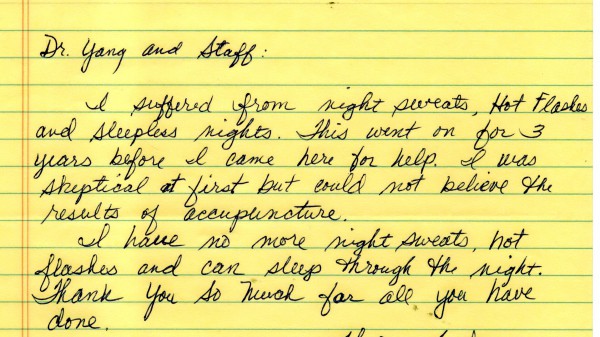 Dr. Yang and Staff:
I suffered from night sweats, Hot Flashes
and sleepless nights. This went on for 3
years before I came here for help. I was
skeptical at first but could not believe the
results of accupuncture.
I have no more night sweats, hot
flashes and can sleep through the night.
Thank you so much for all you have
done.